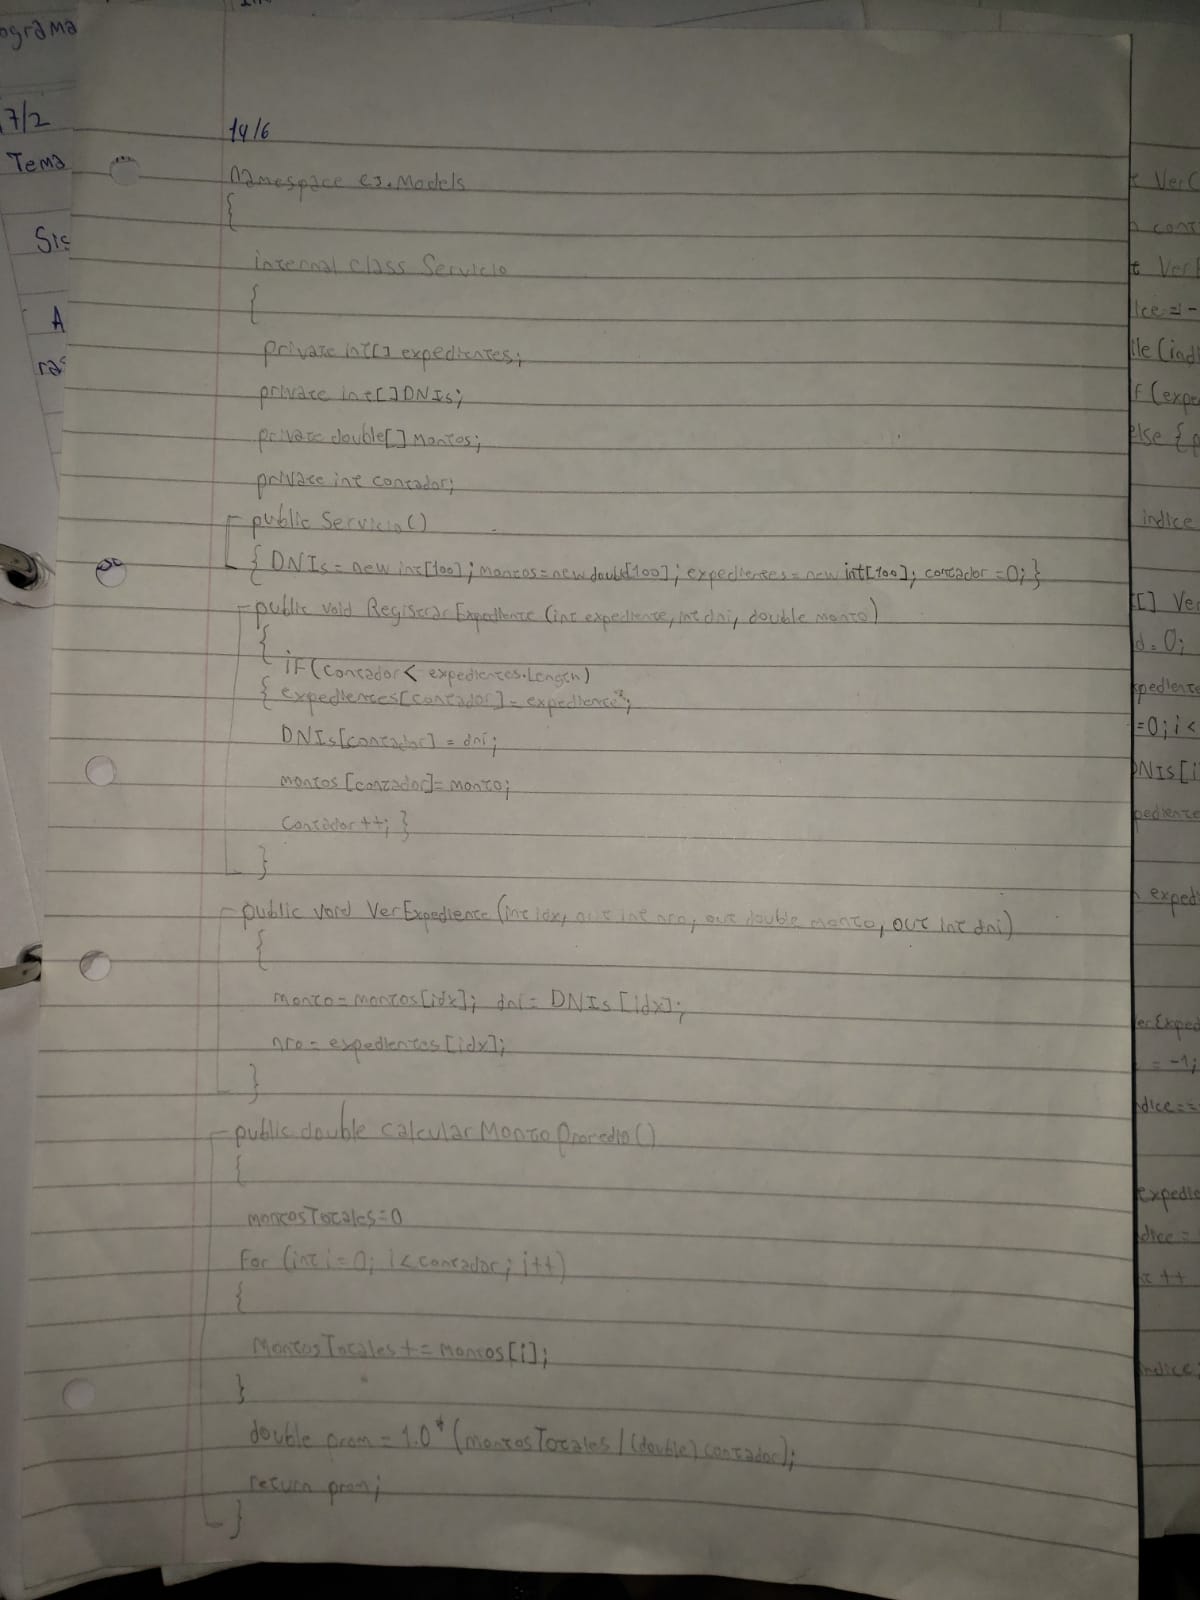 ograma
7/2
Tema
Sis
A
ras
14/6
Namespace ej.Models
{
internal class Servicio
{
private int[] expedientes;
private int[] DNIs;
private double[] montos;
private int contador;
public Servicio()
{ DNIs = new int[100]; montos = new double[100]; expedientes = new int[100]; contador = 0; }
public void Registrar Expediente (int expediente, int dni, double monto)
{
if (contador < expedientes.Length)
{ expedientes[contador] = expediente;
DNIs[contador] = dni;
montos [contador] = monto;
contador ++; }
}
public void VerExpediente (int idx, out int nro, out double monto, out int dni)
{
monto = montos[idx]; dni = DNIs [idx];
nro = expedientes [idx];
}
public double calcularMontoPromedio()
{
montosTotales = 0
For (int i = 0; i < contador; i++)
{
montosTotales += montos[i];
}
double prom = 1.0 * (montosTotales / (double) contador);
return prom;
}
ice = -
ile (indi
if (expe
else {
indice
[] Ver
d. 0;
=0; i <
DNIs[i
pediente
exped
= -1;
dice ==
++
indice;